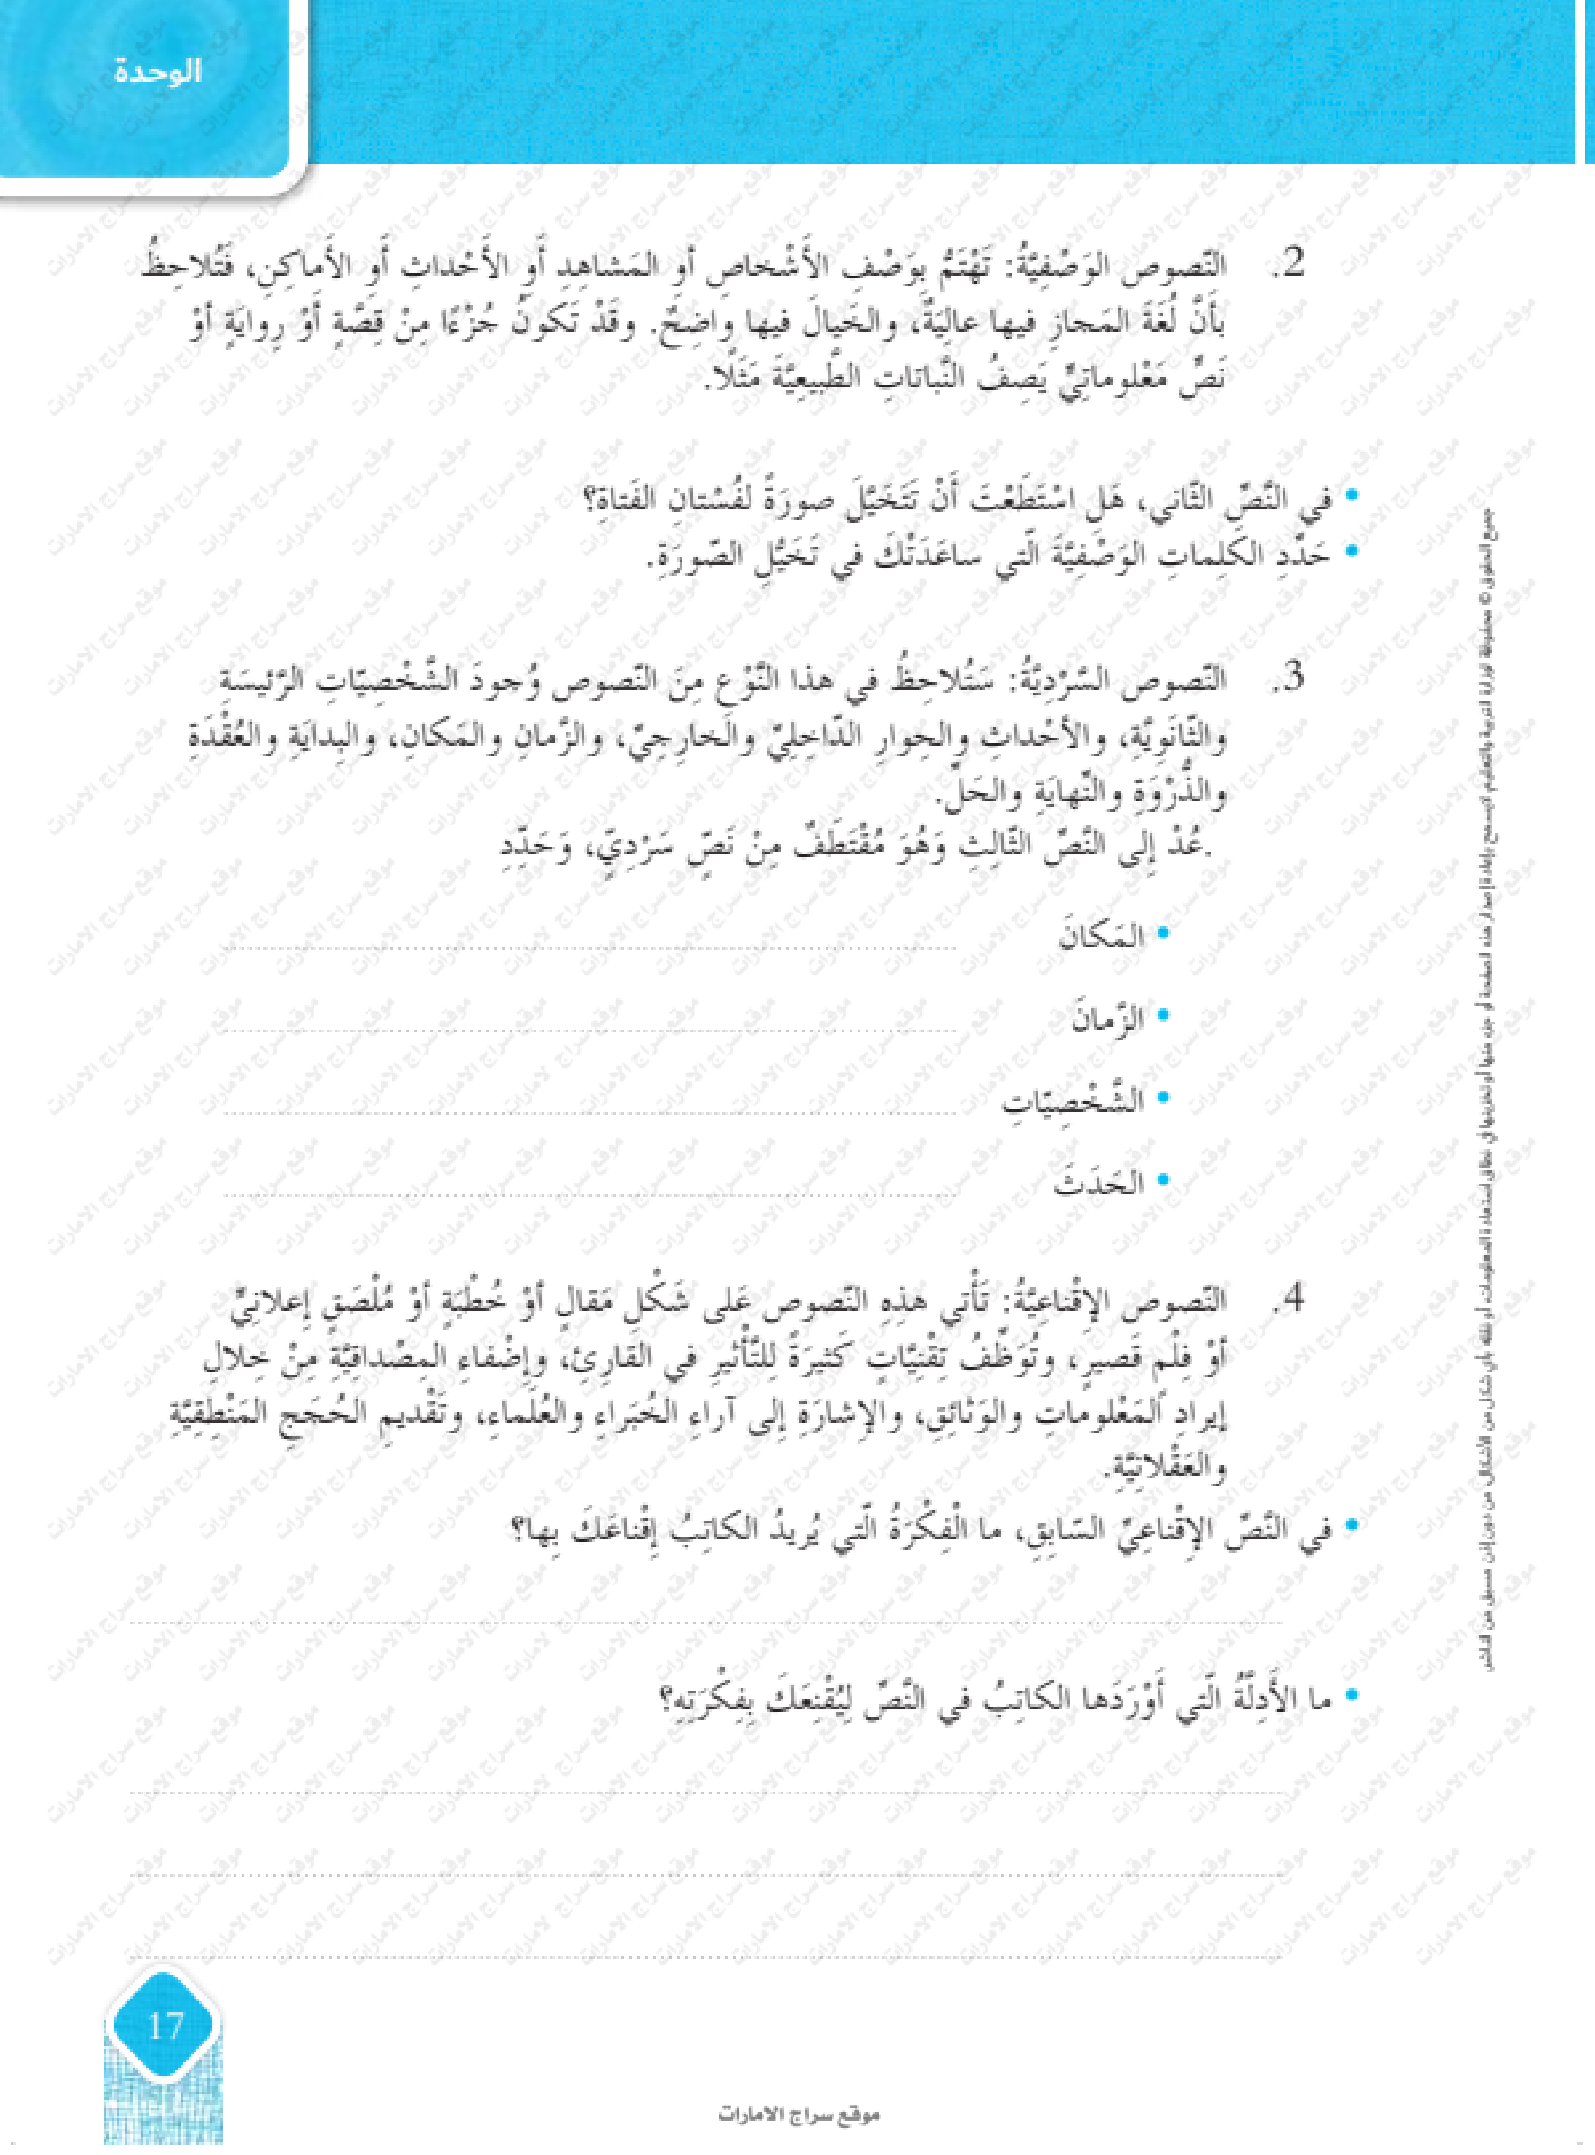 الوحدة
2. النّصوص الوَصْفِيَّةُ: تَهْتَمُّ بِوَصْفِ الأَشْخاصِ أَوِ المَشاهِدِ أَوِ الأَحْداثِ أَوِ الأَماكِنِ، فَتُلاحِظُ
بِأَنَّ لُغَةَ المَجازِ فيها عالِيَةٌ، والخَيالَ فيها واضِحٌ. وقَدْ تَكونُ جُزْءًا مِنْ قِصَّةٍ أَوْ رِوايَةٍ أَوْ
نَصٍّ مَعْلوماتِيٍّ يَصِفُ النَّباتاتِ الطَّبيعِيَّةَ مَثَلًا.
• في النَّصِّ الثّاني، هَلِ اسْتَطَعْتَ أَنْ تَتَخَيَّلَ صورَةً لفُسْتانِ الفَتاةِ؟
• حَدِّدِ الكَلِماتِ الوَصْفِيَّةَ الَّتي ساعَدَتْكَ في تَخَيُّلِ الصّورَةِ.
3. النّصوص السَّرْدِيَّةُ: سَتُلاحِظُ في هذا النَّوْعِ مِنَ النّصوص وُجودَ الشَّخْصِيّاتِ الرَّئيسَةِ
والثّانَوِيَّةِ، والأَحْداثِ والحِوارِ الدّاخِلِيِّ والخارِجِيِّ، والزَّمانِ والمَكانِ، والبِدايَةِ والعُقْدَةِ
والذُّرْوَةِ والنِّهايَةِ والحَلِّ.
.عُدْ إِلى النَّصِّ الثّالِثِ وَهُوَ مُقْتَطَفٌ مِنْ نَصٍّ سَرْدِيٍّ، وَحَدِّدِ
• المَكانَ
• الزَّمانَ
• الشَّخْصِيّاتِ
• الحَدَثَ
4. النّصوص الإِقْناعِيَّةُ: تَأْتي هذِهِ النّصوص عَلى شَكْلِ مَقالٍ أَوْ خُطْبَةٍ أَوْ مُلْصَقٍ إِعلانِيٍّ
أَوْ فِلْمٍ قَصيرٍ، وتُوَظِّفُ تِقْنِيّاتٍ كَثيرَةً لِلتَّأْثيرِ في القارِئِ، وإِضْفاءِ المِصْداقِيَّةِ مِنْ خِلالِ
إيرادِ المَعْلوماتِ والوَثائِقِ، والإِشارَةِ إِلى آراءِ الخُبَراءِ والعُلَماءِ، وتَقْديمِ الحُجَجِ المَنْطِقِيَّةِ
والعَقْلانِيَّةِ.
• في النَّصِّ الإِقْناعِيِّ السّابِقِ، ما الْفِكْرَةُ الَّتي يُريدُ الكاتِبُ إِقْناعَكَ بِها؟
• ما الأَدِلَّةُ الَّتي أَوْرَدَها الكاتِبُ في النَّصِّ لِيُقْنِعَكَ بِفِكْرَتِهِ؟
جميع الحقوق © محفوظة لوزارة التربية والتعليم لا يسمح بإعادة إصدار هذه الصفحة أو جزء منها أو تخزينها في نطاق استعادة المعلومات أو نقله بأي شكل من الأشكال، من دون إذن مسبق من الناشر
17
موقع سراج الامارات